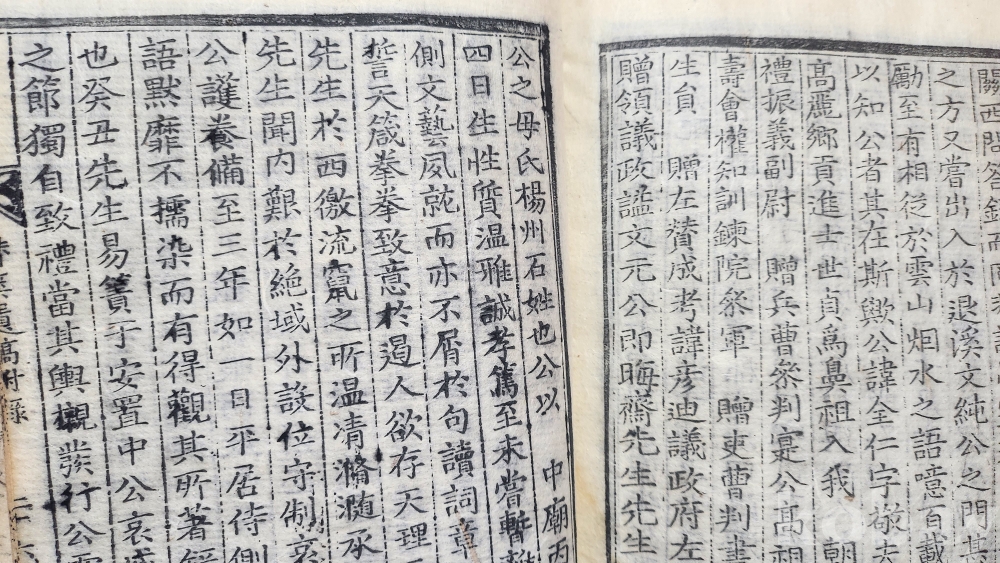 關西問答錄
之方又嘗出入於退溪文純公之門其
勵至有相從於雲山烟水之語噫百載
以知公者其在斯歟公諱全仁字敬夫
高麗鄉貢進士世貞爲鼻祖入我 朝
禮振義副尉 贈兵曹叅判寔公高祖
壽會權知訓鍊院叅軍 贈吏曹判書
生員 贈左贊成考諱彦迪議政府左
贈領議政謚文元公即晦齋先生先生
公之母氏楊州石姓也公以 中廟丙
四日生性質温雅誠孝篤至未嘗暫離
側文藝夙就而亦不屑於句讀詞章
誓天箴拳拳致意於遏人欲存天理
先生於西徼流竄之所温凊滫瀡承
先生聞內艱於絶域外設位守制哀
公護養備至三年如一日平居侍側
語默靡不擩染而有得觀其所著
也癸丑先生易簀于安置中公哀
之節獨自致禮當其輿櫬發行公